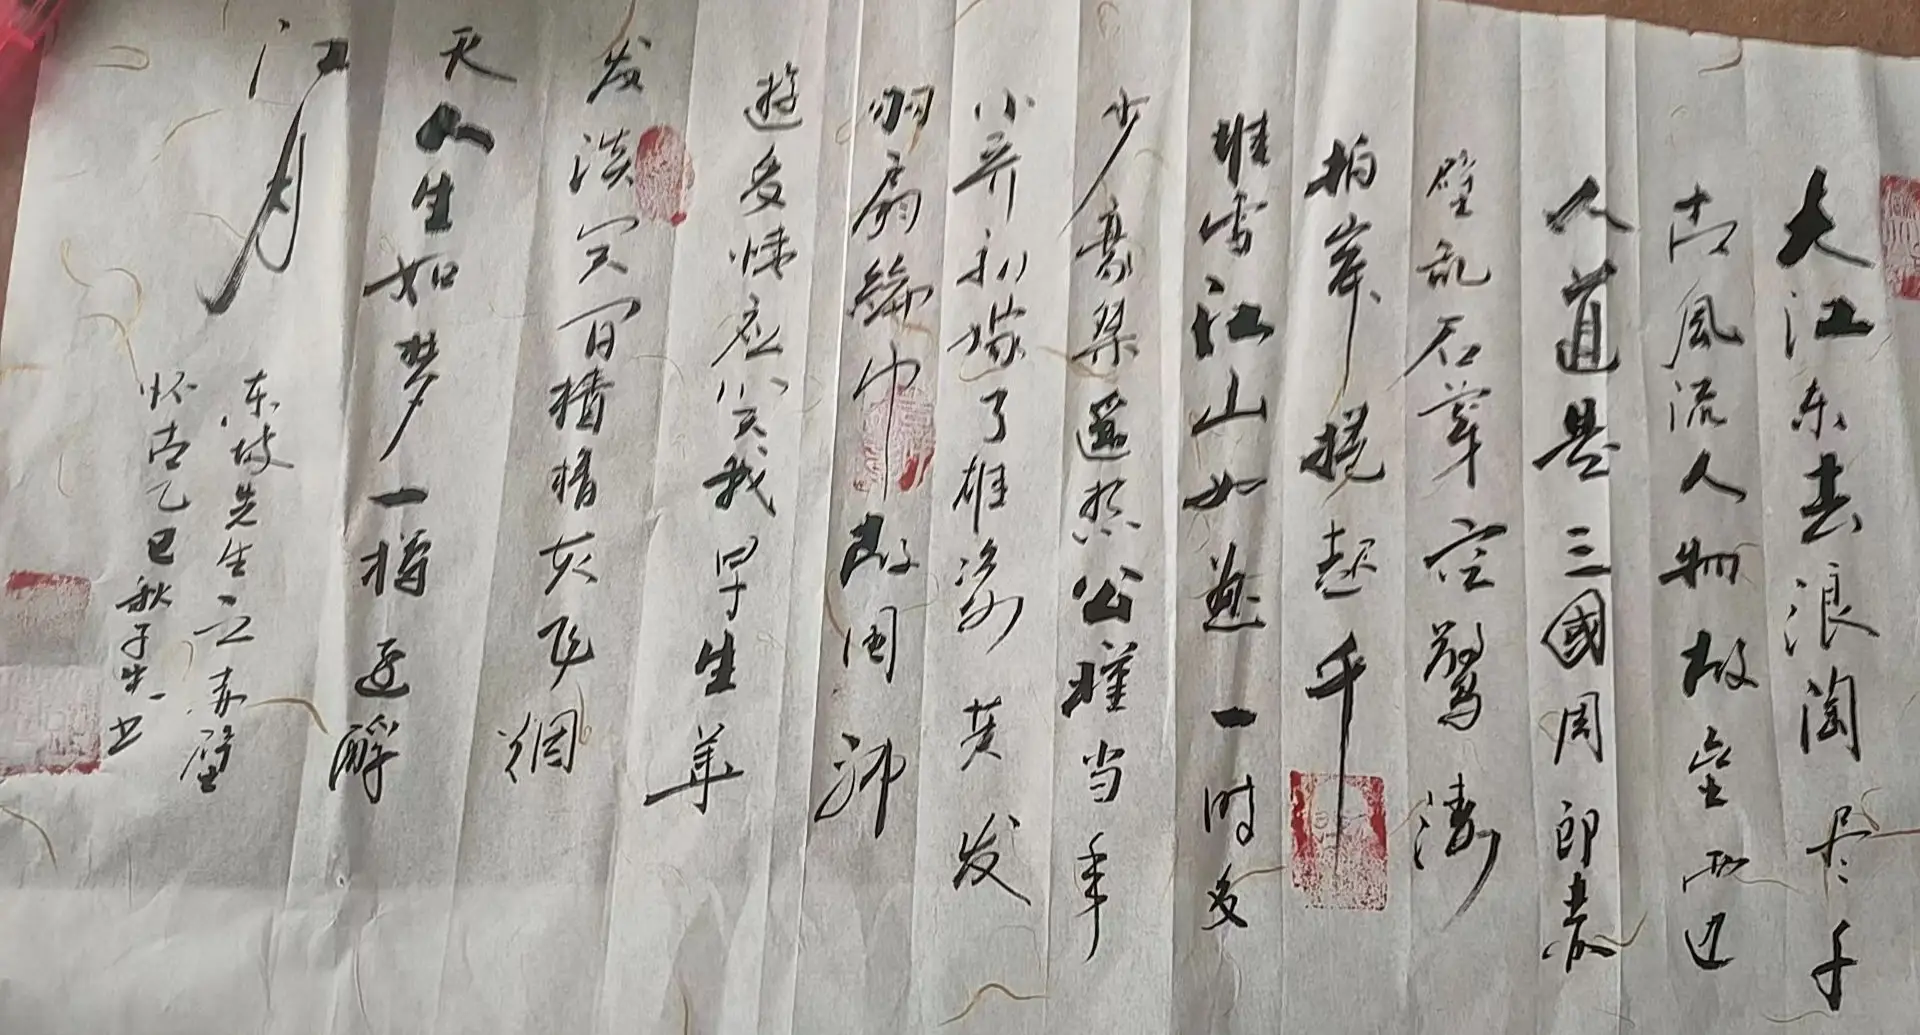 大江东去浪淘尽千
古風流人物故垒西边
人道是三國周郎赤
壁乱石穿空驚涛
拍岸捲起千
堆雪江山如画一时多
少豪杰遥想公瑾当年
小乔初嫁了雄姿英发
羽扇綸巾故国神
遊多情应笑我早生华
发谈笑间樯橹灰飞烟
灭人生如梦一樽还酹
江月
东坡先生之赤壁
怀古乙巳秋子书